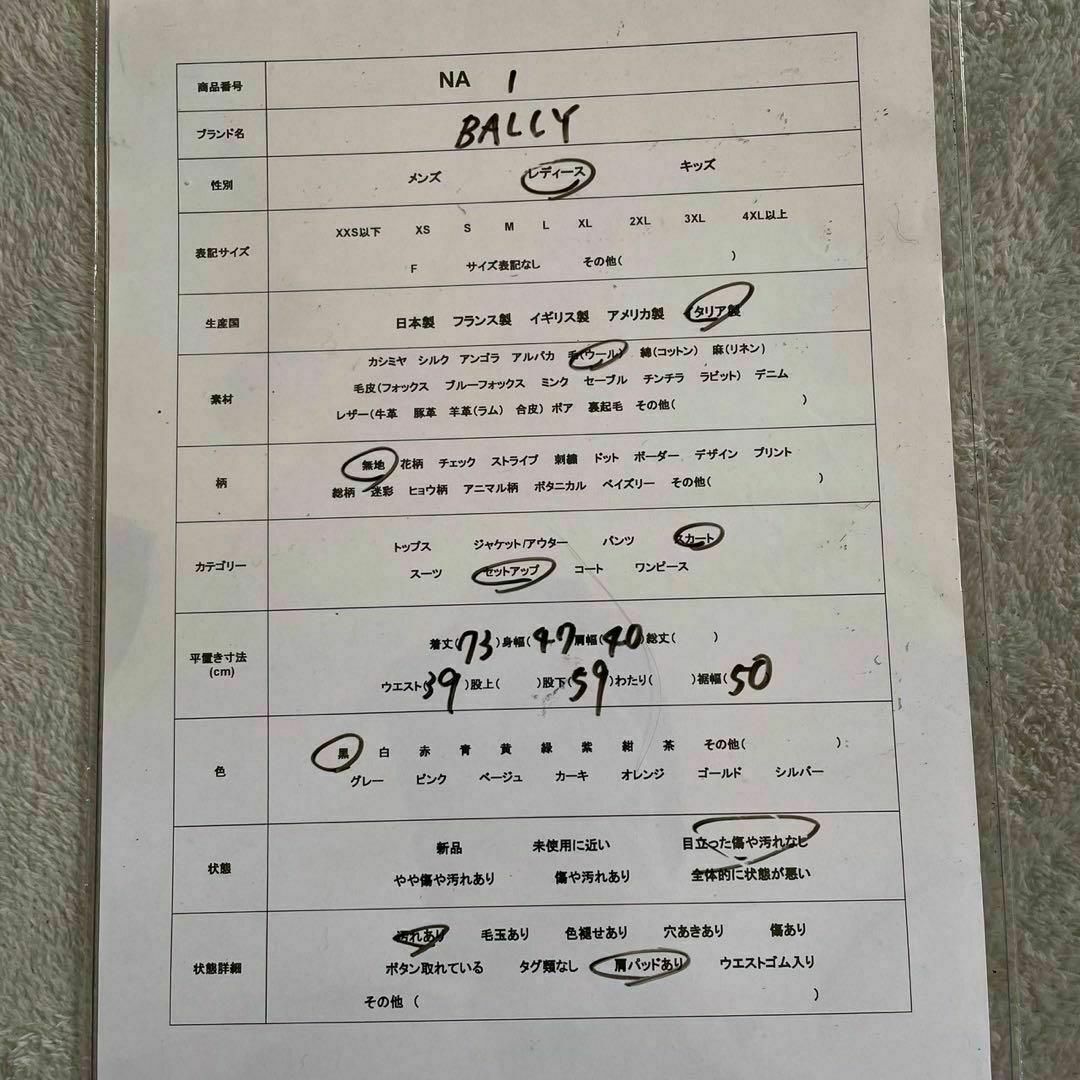 商品番号 NA 1
ブランド名 BALLY
性別 メンズ レディース キッズ
表記サイズ
XXS以下 XS S M L XL 2XL 3XL 4XL以上
F サイズ表記なし その他( )
生産国 日本製 フランス製 イギリス製 アメリカ製 イタリア製
素材
カシミヤ シルク アンゴラ アルパカ 毛(ウール) 綿(コットン) 麻(リネン)
毛皮(フォックス ブルーフォックス ミンク セーブル チンチラ ラビット) デニム
レザー(牛革 豚革 羊革(ラム) 合皮) ボア 裏起毛 その他( )
柄
無地 花柄 チェック ストライプ 刺繍 ドット ボーダー デザイン プリント
総柄 迷彩 ヒョウ柄 アニマル柄 ボタニカル ペイズリー その他( )
カテゴリー
トップス ジャケット/アウター パンツ スカート
スーツ セットアップ コート ワンピース
平置き寸法
(cm)
着丈(73)身幅(47 肩幅(40)総丈( )
ウエスト(39)股上( )股下(59)わたり( )裾幅(50
色
黒 白 赤 青 黄 緑 紫 紺 茶 その他( )
グレー ピンク ベージュ カーキ オレンジ ゴールド シルバー
状態
新品 未使用に近い 目立った傷や汚れなし
やや傷や汚れあり 傷や汚れあり 全体的に状態が悪い
状態詳細
汚れあり 毛玉あり 色褪せあり 穴あきあり 傷あり
ボタン取れている タグ類なし 肩パッドあり ウエストゴム入り
その他 ( )